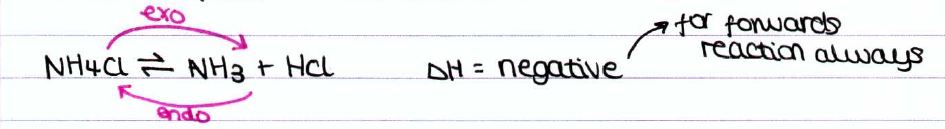 exo
NH4Cl ⇌ NH3 + HCl
endo
ΔH = negative
for forwards
reaction always